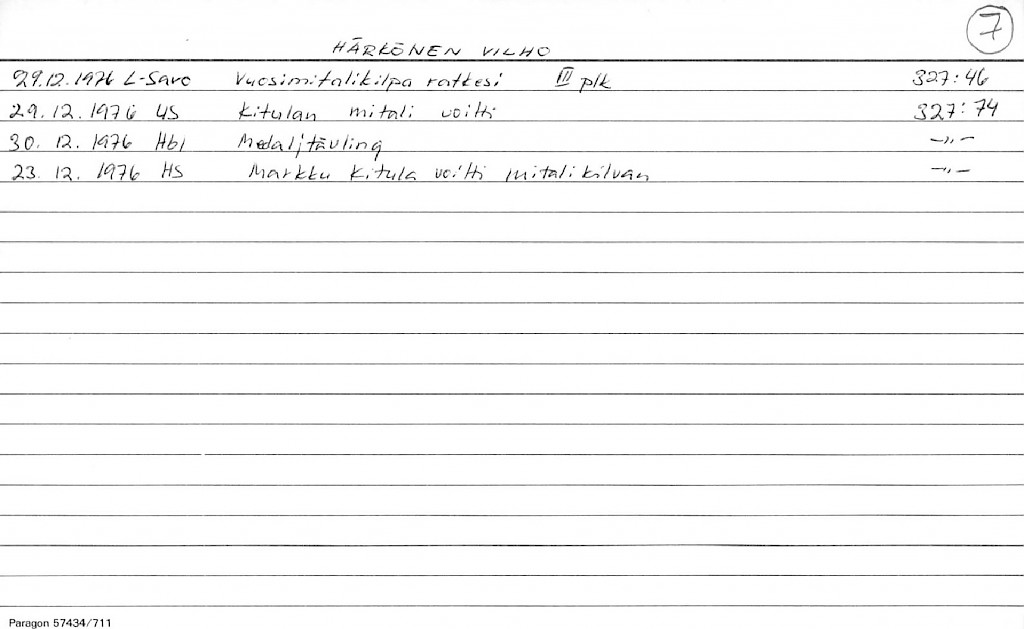 7
HÄRKÖNEN VILHO
29.12.1976 L-Savo Vuosimitalikilpa ratkesi III plk 327:46
29.12.1976 US Kitulan mitali voitti 327:74
30.12.1976 Hbl Medaljtävling -"-
23.12.1976 HS Markku Kitula voitti mitalikilvan -"-
Paragon 57434/711